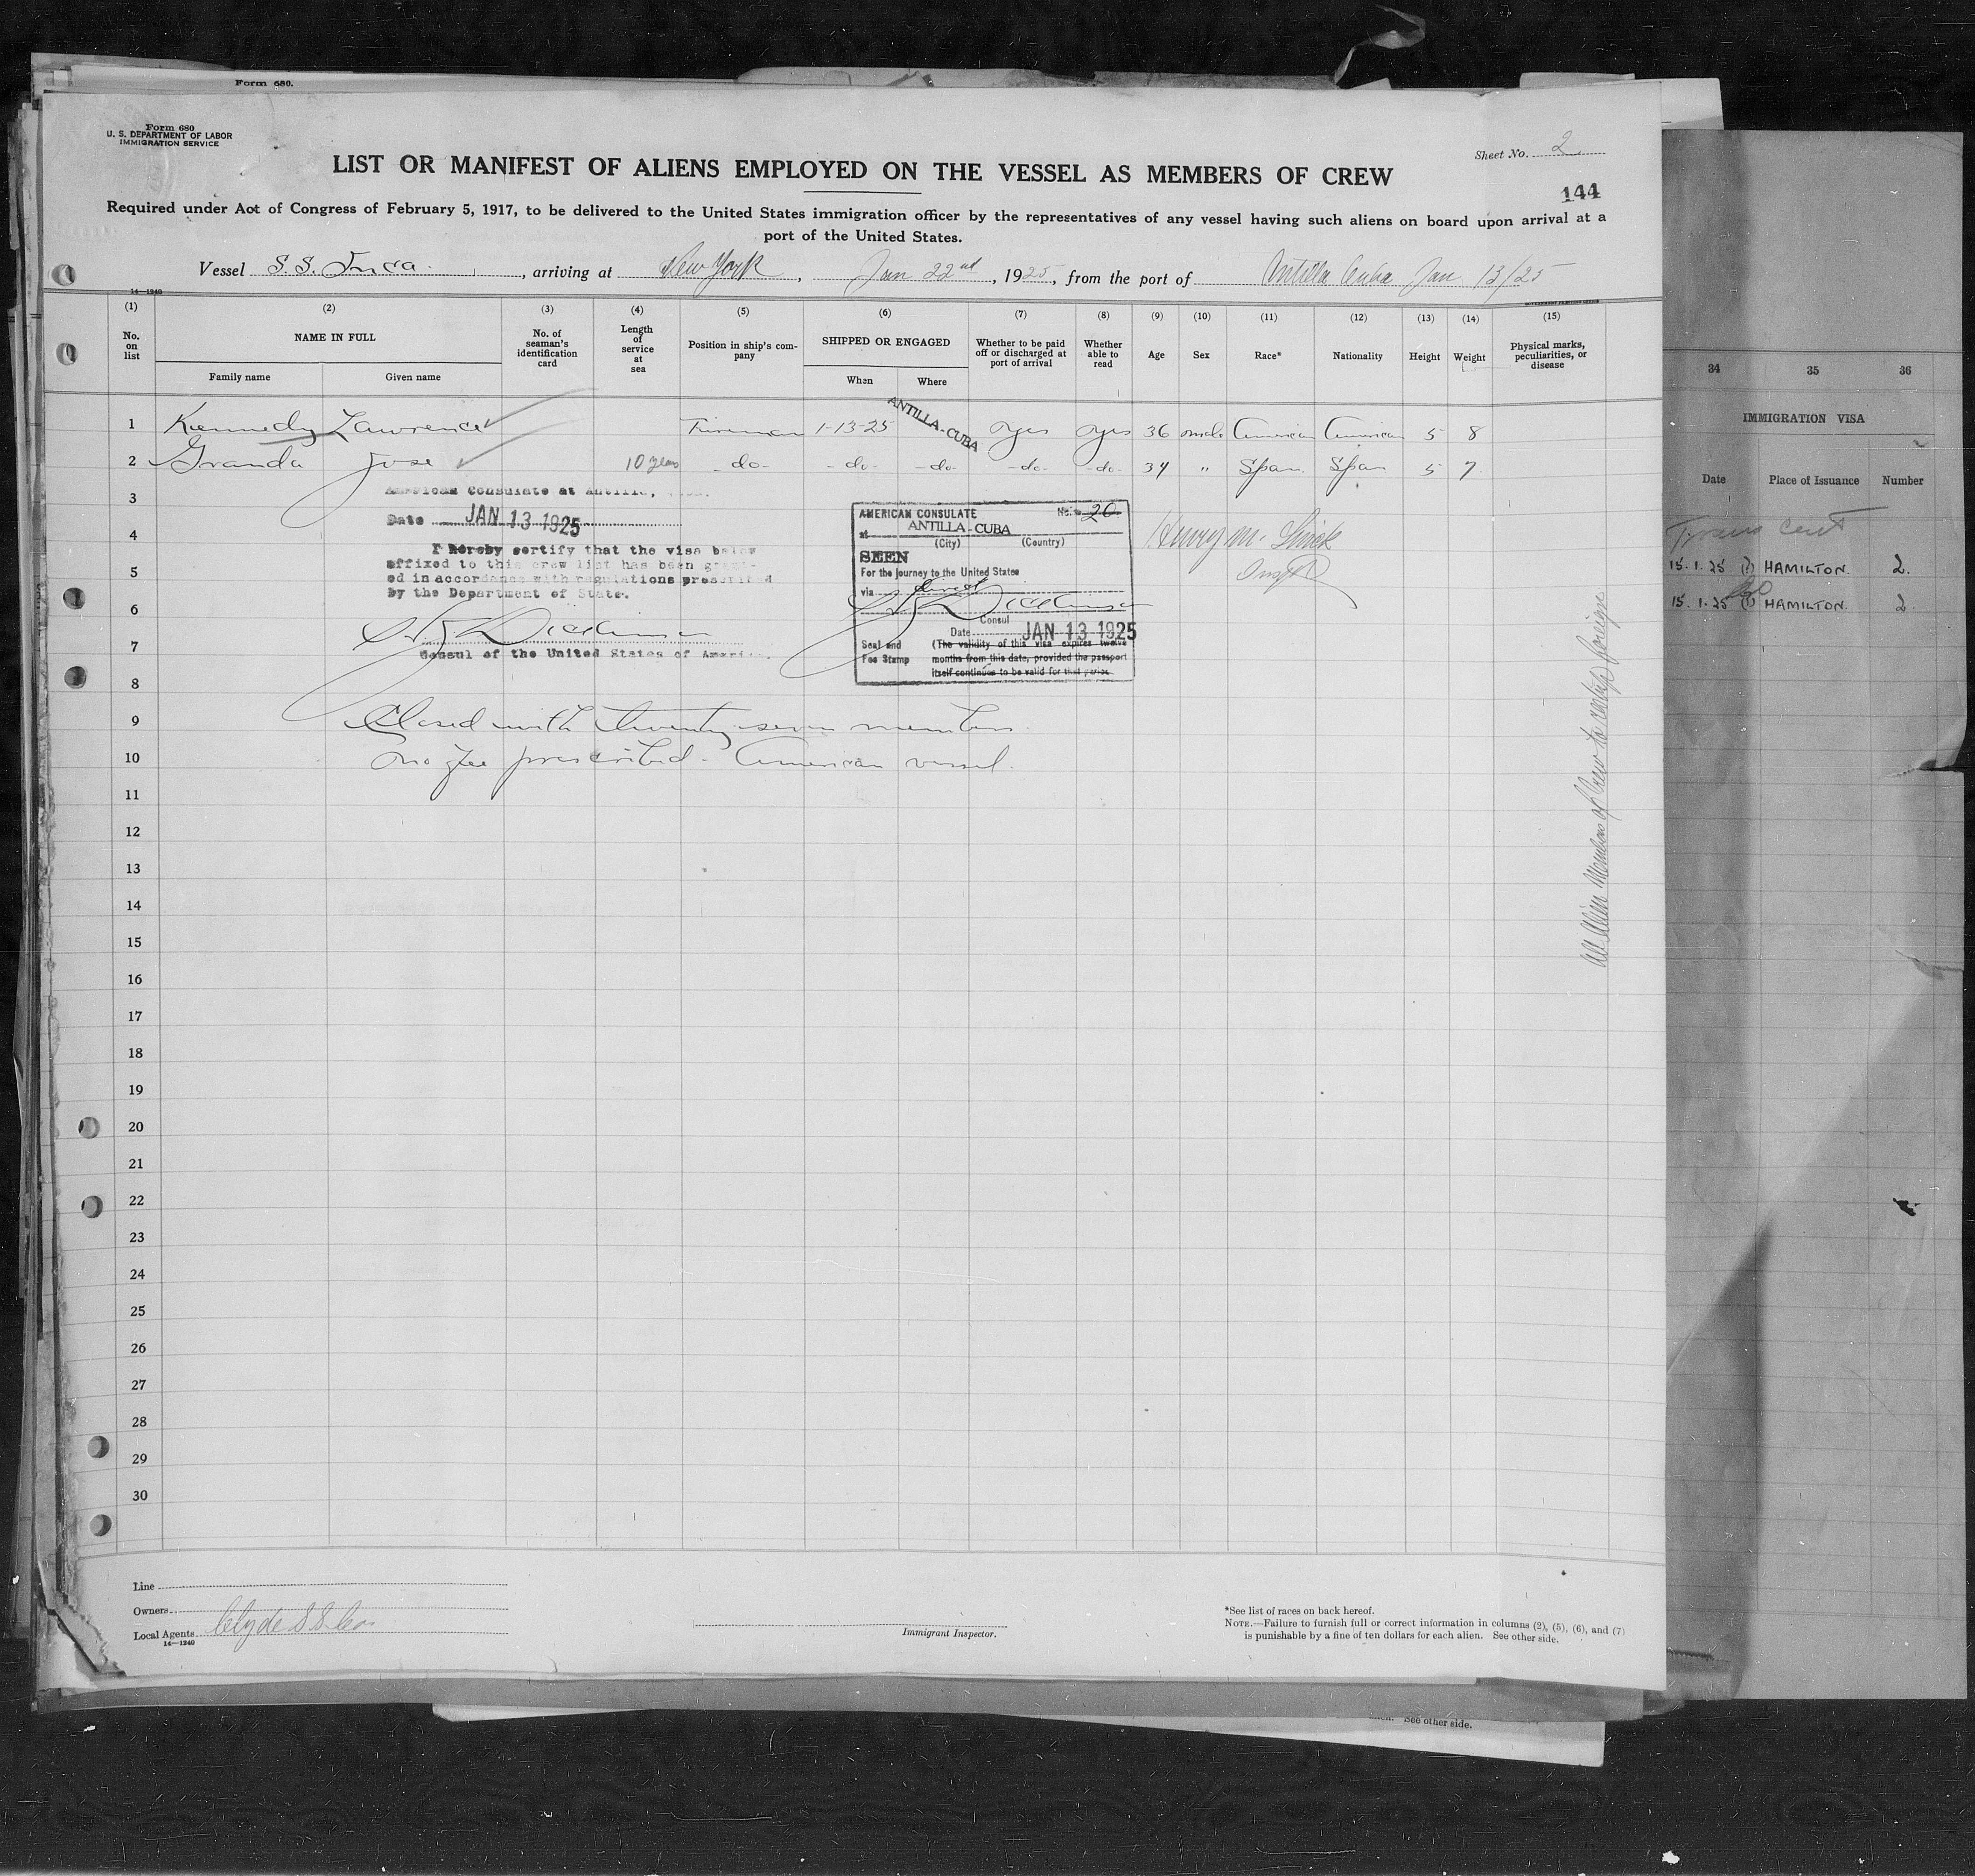 Form 680.
Form 680
U. S. DEPARTMENT OF LABOR
IMMIGRATION SERVICE
Sheet No. 2
LIST OR MANIFEST OF ALIENS EMPLOYED ON THE VESSEL AS MEMBERS OF CREW
144
Required under Act of Congress of February 5, 1917, to be delivered to the United States immigration officer by the representatives of any vessel having such aliens on board upon arrival at a
port of the United States.
Vessel S.S. Inca, arriving at New York, Jan 22nd, 1925, from the port of Antilla Cuba Jan 13/25
14—1240
(1) (2) (3) (4) (5) (6) (7) (8) (9) (10) (11) (12) (13) (14) (15)
No. on list NAME IN FULL No. of seaman's identification card Length of service at sea Position in ship's company SHIPPED OR ENGAGED Whether to be paid off or discharged at port of arrival Whether able to read Age Sex Race* Nationality Height Weight Physical marks, peculiarities, or disease
Family name Given name When Where
1 Kennedy Lawrence Fireman 1-13-25 ANTILLA-CUBA yes yes 36 male American American 5 8
2 Granda Jose 10 years -do- -do- -do- -do- -do- 34 " Span. Span 5 7
3
American Consulate at Antilla,
Date JAN 13 1925
4
I hereby certify that the visa below
affixed to this crew list has been grant-
ed in accordance with regulations prescribed
by the Department of State.
5
6
7
Consul of the United States of America.
AMERICAN CONSULATE No. 20
at ANTILLA-CUBA
(City) (Country)
SEEN
For the journey to the United States
via direct
Consul
Date JAN 13 1925
Seal and Fee Stamp
(The validity of this visa expires twelve
months from this date, provided the passport
itself continues to be valid for that period.
Henry M.
8
9 Closed with twenty-seven members
10 no fee prescribed - American vessel.
11
12
13
14
15
16
17
18
19
20
21
22
23
24
25
26
27
28
29
30
All Alien Members of Crew to reship foreign
Line
Owners
Local Agents Clyde S S Co
14—1240
Immigrant Inspector.
*See list of races on back hereof.
NOTE.—Failure to furnish full or correct information in columns (2), (5), (6), and (7)
is punishable by a fine of ten dollars for each alien. See other side.
34 35 36
IMMIGRATION VISA
Date Place of Issuance Number
Trans cert
15.1.25 HAMILTON. 2.
15.1.25 HAMILTON. 2.
See other side.